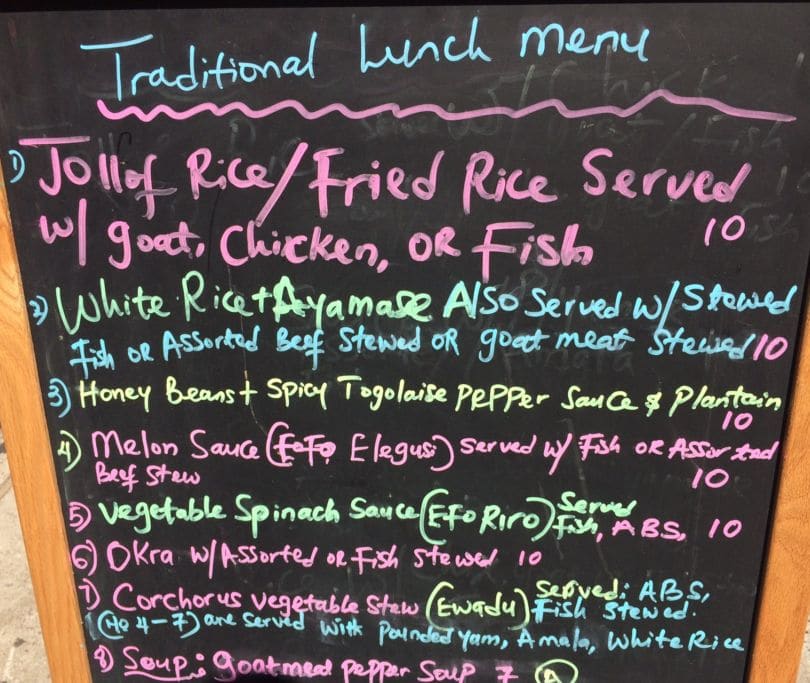 Traditional Lunch menu
1) Jollof Rice/Fried Rice Served
w/ goat, Chicken, OR Fish 10
2) White Rice + Ayamase Also Served w/ Stewed
Fish OR Assorted Beef Stewed OR goat meat Stewed 10
3) Honey Beans + Spicy Togolaise Pepper Sauce & Plantain
10
4) Melon Sauce (EFO Elegusi) Served w/ Fish OR Assorted
Beef Stew 10
5) Vegetable Spinach Sauce (EFO Riro) Served
Fish, ABS, 10
6) Okra w/ Assorted OR Fish Stewed 10
7) Corchorus vegetable Stew (Ewadu) Served: ABS,
Fish Stewed.
(No 4-7) are served with Pounded yam, Amala, White Rice
8) Soup: goatmeat Pepper Soup 7 A